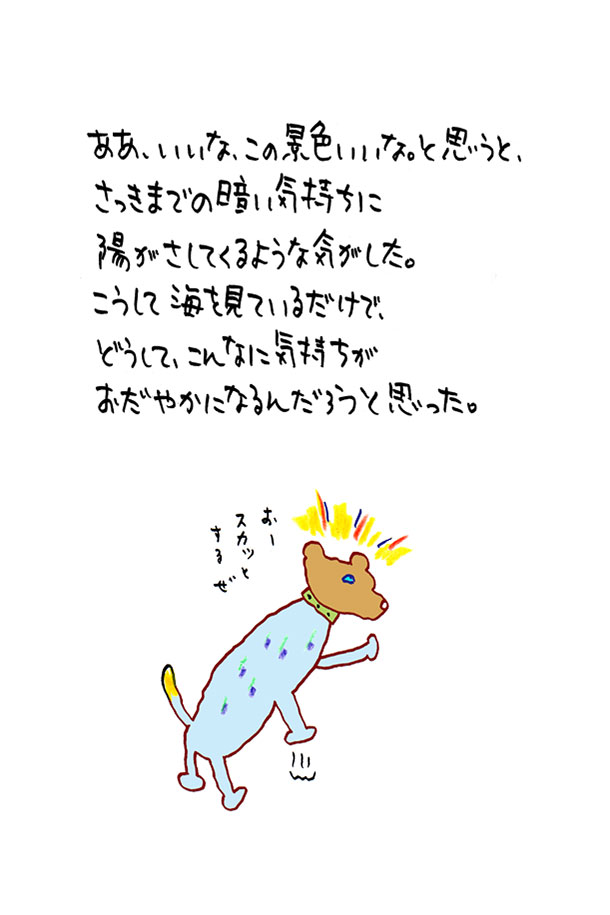 ああ、いいな、この景色いいな。と思うと、
さっきまでの暗い気持ちに
陽がさしてくるような気がした。
こうして海を見ているだけで、
どうして、こんなに気持ちが
おだやかになるんだろうと思った。
おー
スカッと
するぜ